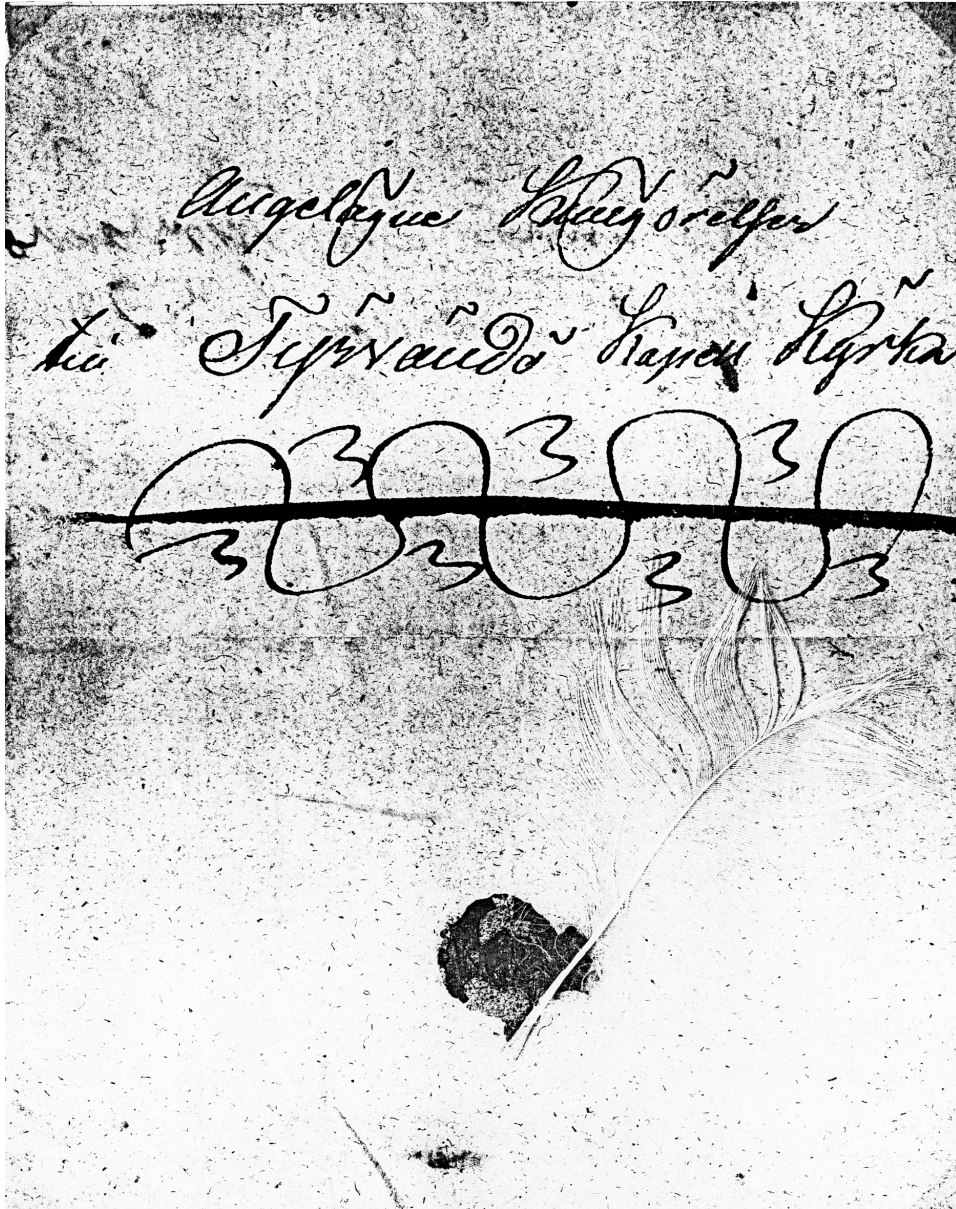 Angelägne Kungörelser
till Tyrvändö Kapell Kyrka